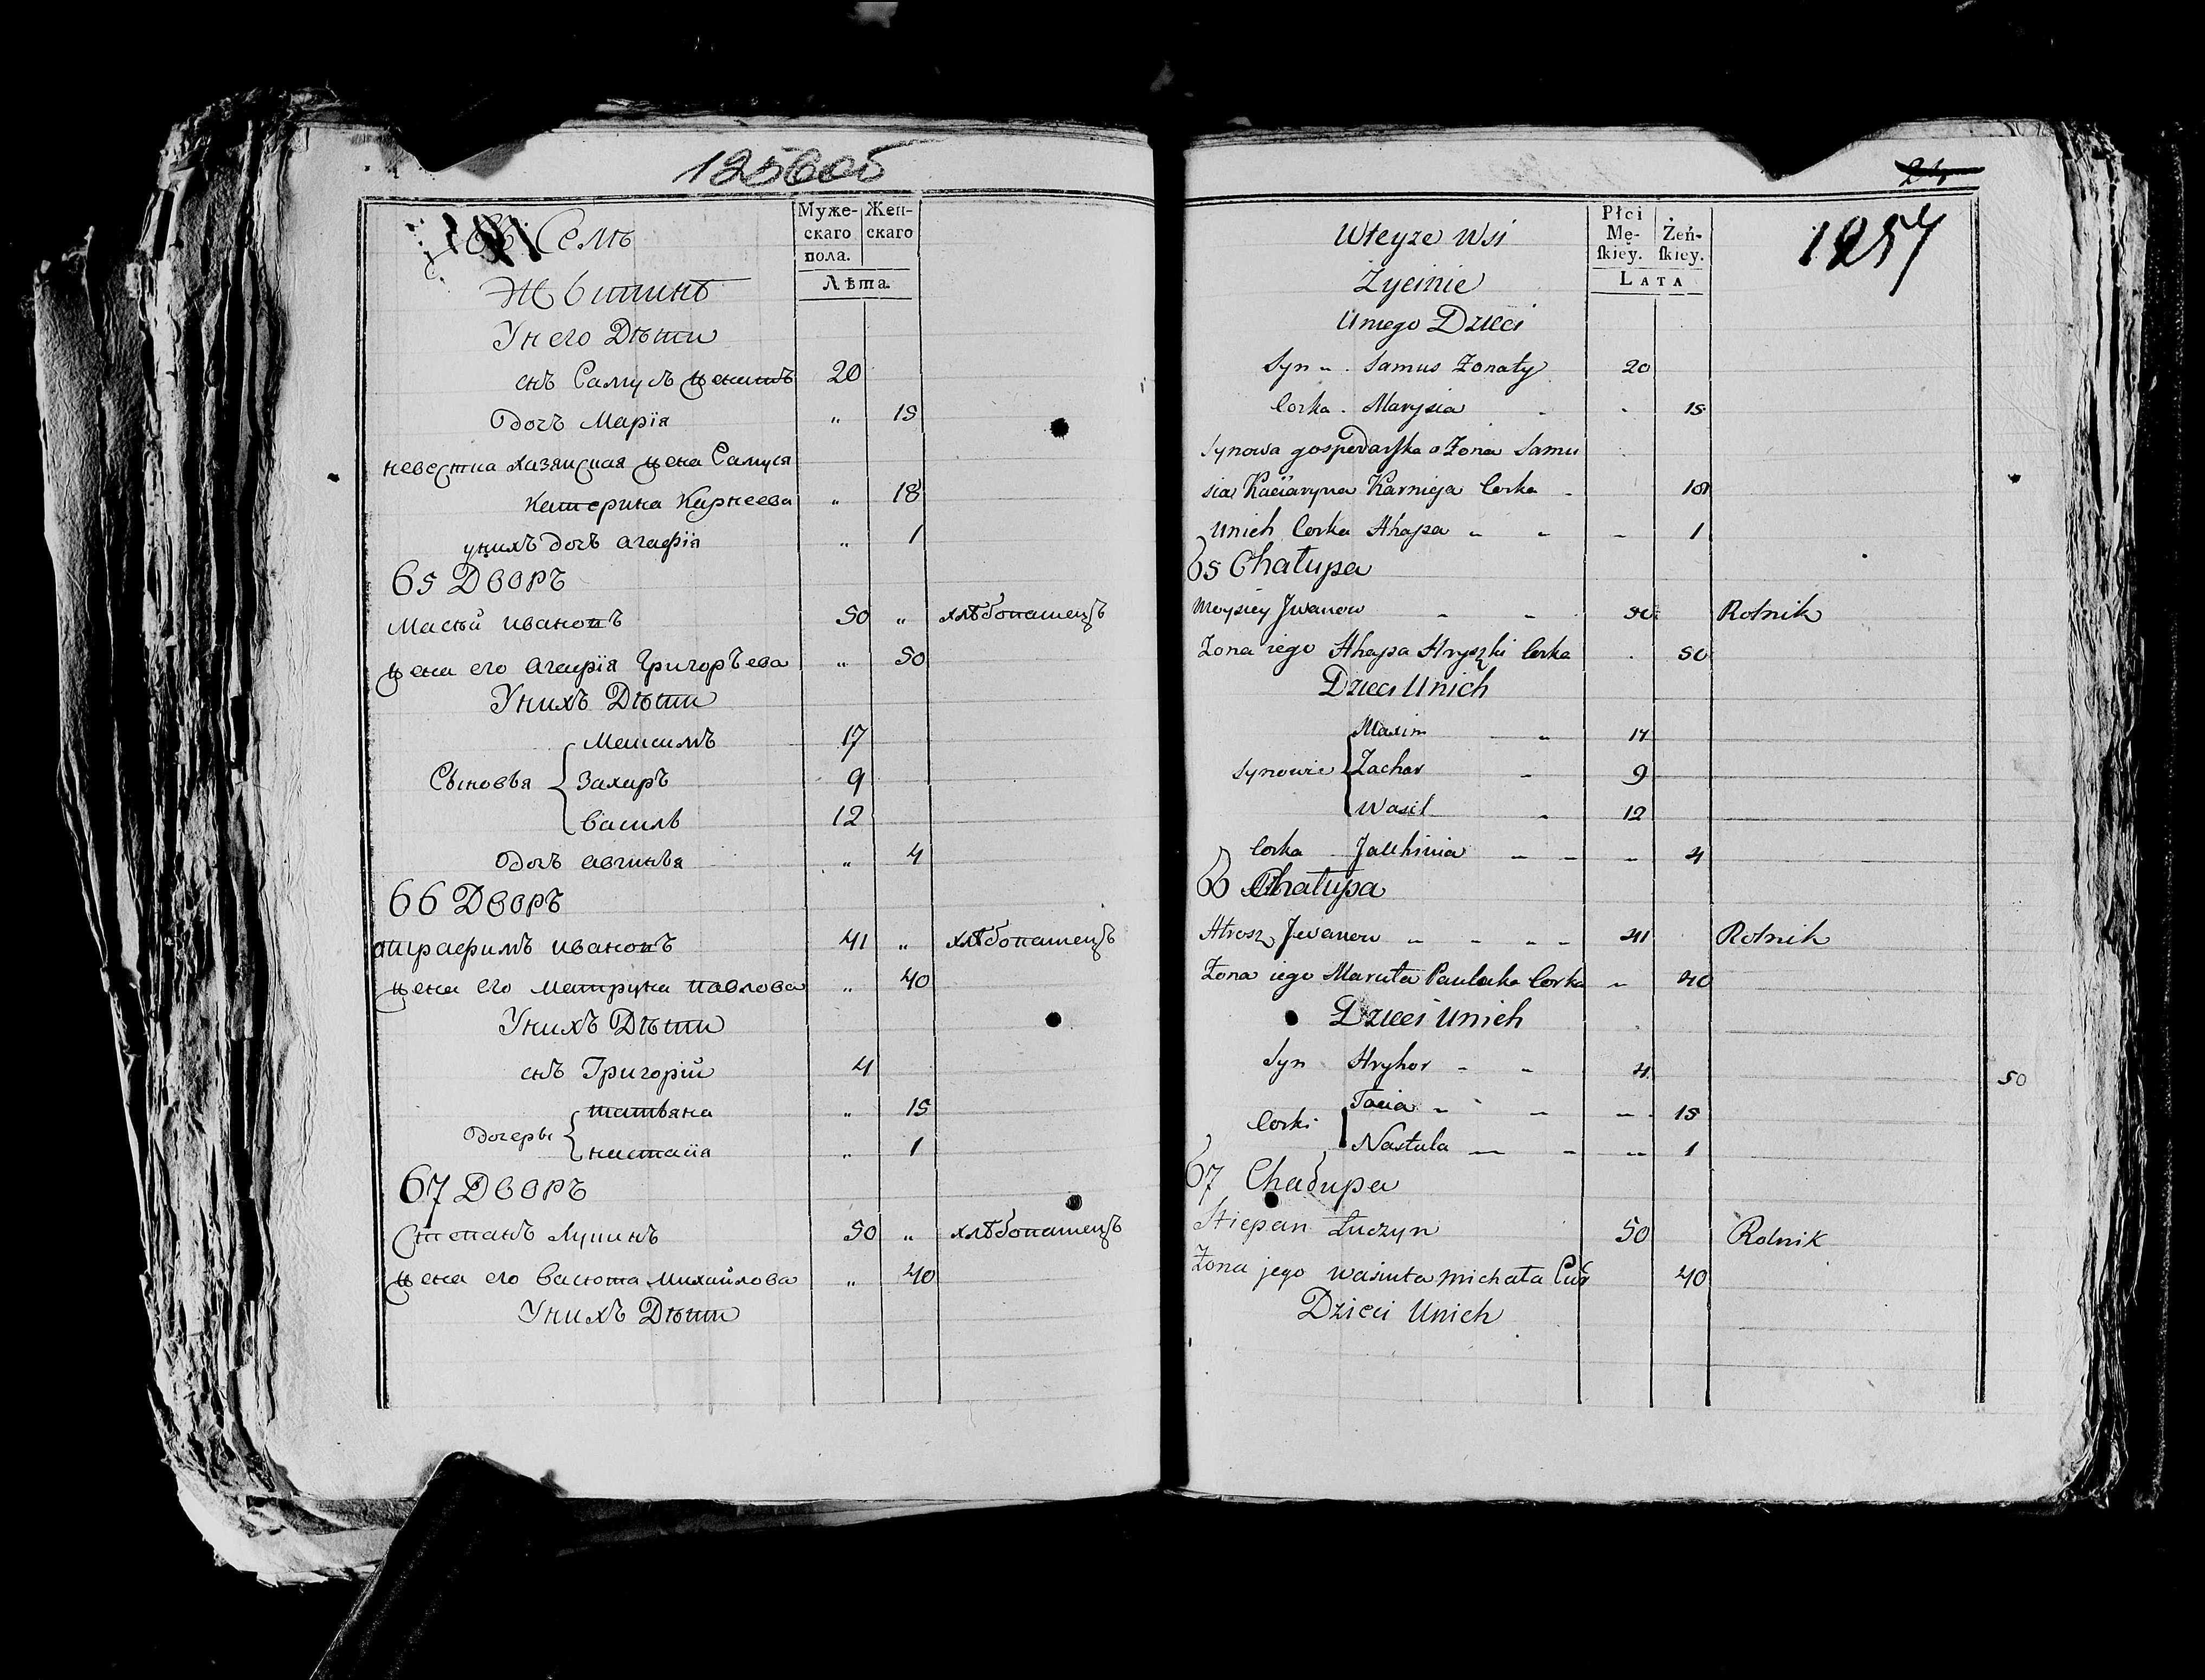 1256об
Муже-
скаго
пола.
Жен-
скаго
Лѣта
Семъ
Жытинѣ
У него Дѣти
снъ Самусъ женатъ 20
дочь Марїя „ 15
невестка хазяйская жена Самуся
Катерина Карнеева „ 18
у нихъ дочь агафїя „ 1
65 Дворъ
Масѣй ивановъ 50 „ хлѣбопашецъ
жена его агафїя Григорьева „ 50
У нихъ Дѣти
Сыновья { Максимъ 17
Захаръ 9
василь 12
дочь авгинья „ 4
66 Дворъ
атрафимъ ивановъ 41 „ хлѣбопашецъ
жена его матруна павлова „ 40
У нихъ Дѣти
снъ Григорїй 4
дочеры { татьяна „ 15
настасїя „ 1
67 Дворъ
Степанъ лучинъ 50 „ хлѣбопашецъ
жена его васюта михайлова „ 40
У нихъ Дѣти
24
1257
Płci
Mę-
ſkiey.
Żeń-
ſkiey.
LATA
Wteyże Wsi
Życinie
Uniego Dzieci
Syn „ . Samus Żonaty 20
Corka . Marysia - - 15
Synowa gospodarſka a Żona Samu
sia Kaciaryna Karnieja Corka - 18
Unich Corka Ahapa „ - - 1
65 Chałupa
Moysiey Jwanow - - 50 Rolnik
Żona iego Ahapa Hryszki Corka . 50
Dzieci Unich
Synowie { Maxim „ 17
Zachar - 9
Wasil - 12
Corka Jauhinia - - - 4
66 Chałupa
Atrosz Jwanow „ - - - 41 Rolnik
Żona iego Maruta Paulaka Corka - 40
Dzieci Unich
Syn Hryhor - - 4
50
Corki { Tacia „ - - 15
Nastula - - - 1
67 Chałupa
Stiepan Łuczyn 50 Rolnik
Żona jego wasiuta michała Cur 40
Dzieci Unich